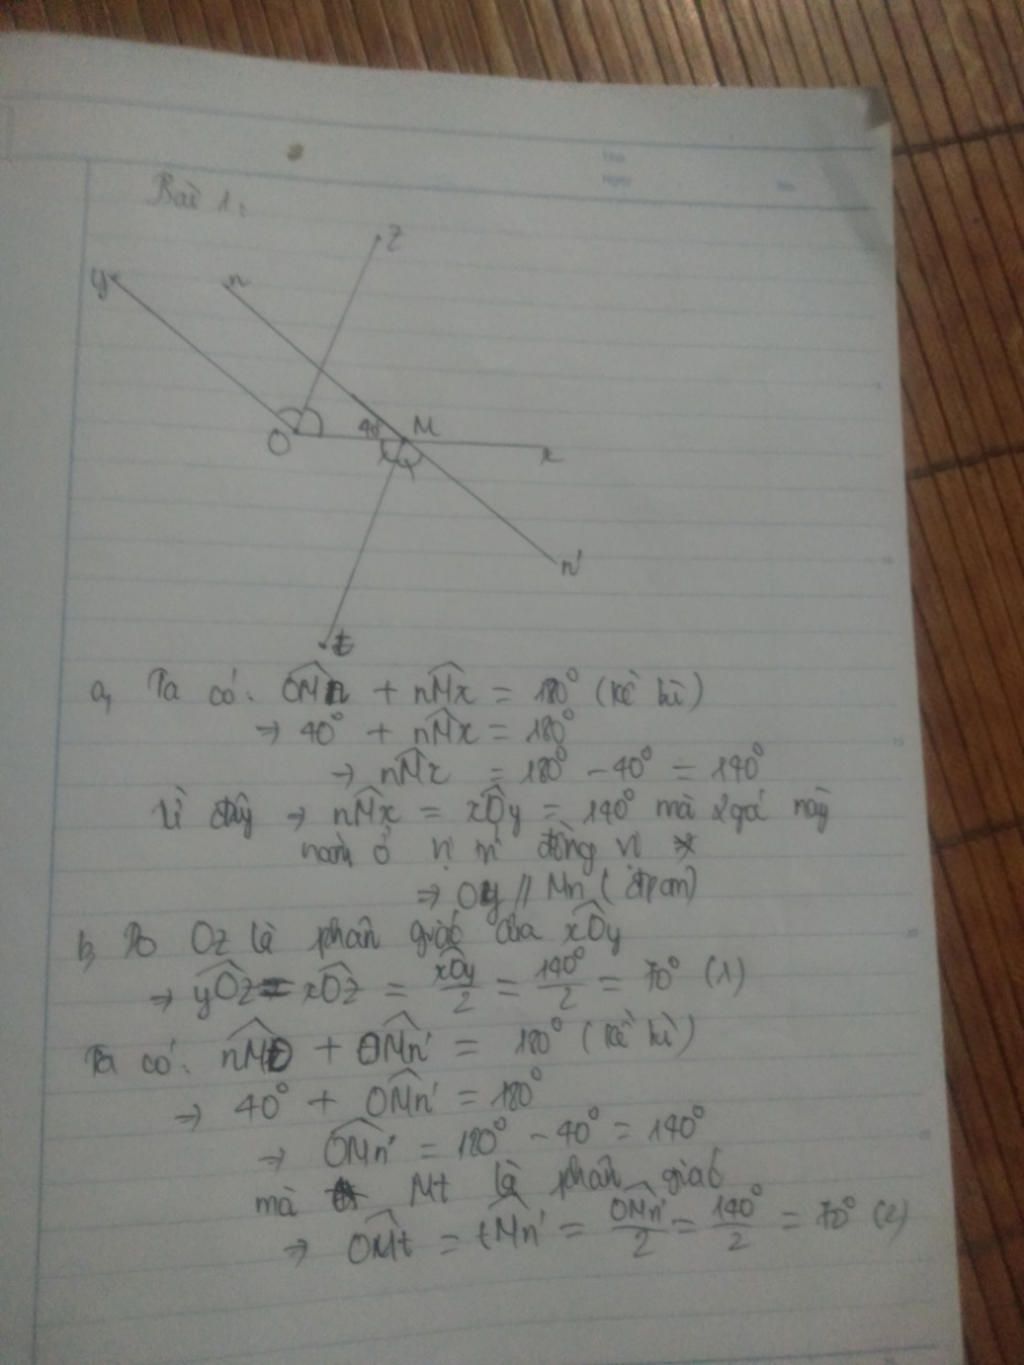 Bài 1:
z
y
n
O
40
M
x
n'
t
a, Ta có: OMn + nMx = 180° (kề bù)
⇒ 40° + nMx = 180°
⇒ nMx = 180° - 40° = 140°
Vì đây ⇒ nMx = xOy = 140° mà 2 góc này
nằm ở vị trí đồng vị
⇒ Oy // Mn (đpcm)
b, Do Oz là phân giác của xOy
⇒ yOz = xOz = xOy/2 = 140°/2 = 70° (1)
Ta có: nMO + OMn' = 180° (kề bù)
⇒ 40° + OMn' = 180°
⇒ OMn' = 180° - 40° = 140°
mà Mt là phân giác
⇒ OMt = tMn' = OMn'/2 = 140°/2 = 70° (2)